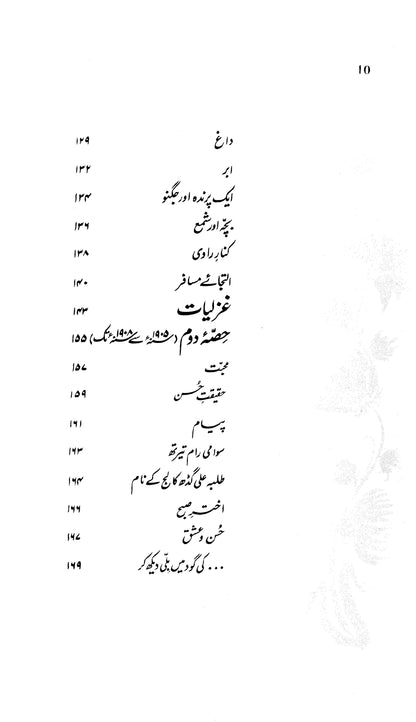 10
داغ ۱۲۹
ابر ۱۳۲
ایک پرندہ اور جگنو ۱۳۴
بچّہ اور شمع ۱۳۶
کنارِ راوی ۱۳۸
التجائے مسافر ۱۴۰
غزلیات ۱۴۳
حصّۂ دوم (۱۹۰۵ء سے ۱۹۰۸ء تک) ۱۵۵
محبّت ۱۵۷
حقیقتِ حُسن ۱۵۹
پیام ۱۶۱
سوامی رام تیرتھ ۱۶۳
طلبہ علی گڈھ کالج کے نام ۱۶۴
اخترِ صبح ۱۶۶
حُسن و عشق ۱۶۷
... کی گود میں بلّی دیکھ کر ۱۶۹